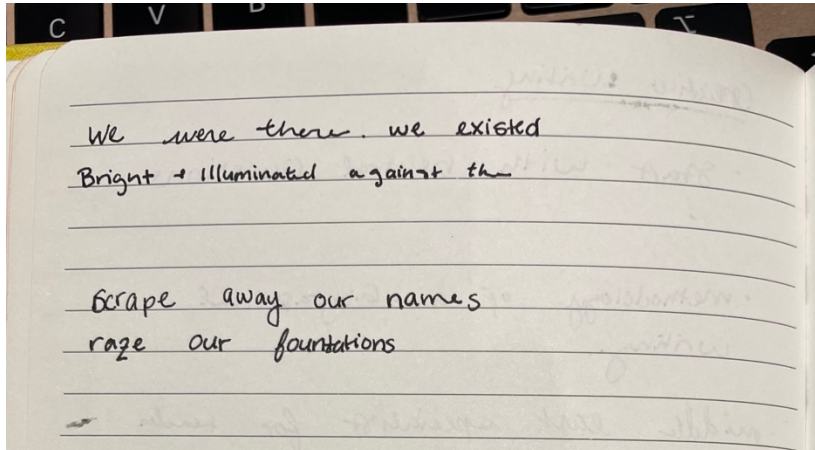 C
V
We were there. we existed
Bright + Illuminated against the
Scrape away our names
raze our fountations